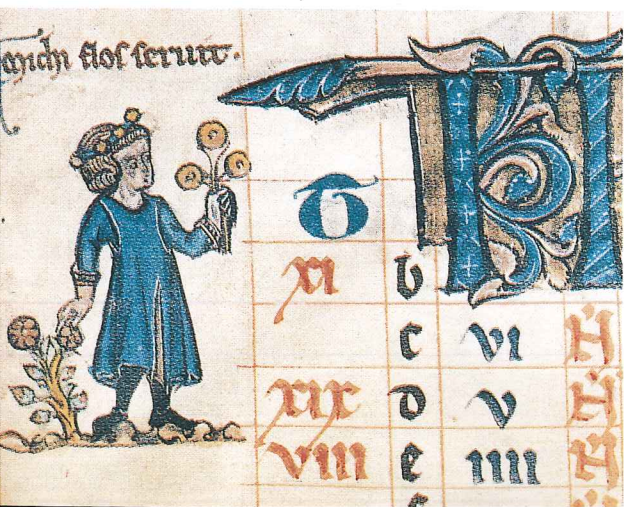 michi flos seruit·
KL
xi b
c vi N
xix d v N
viii e iiii N